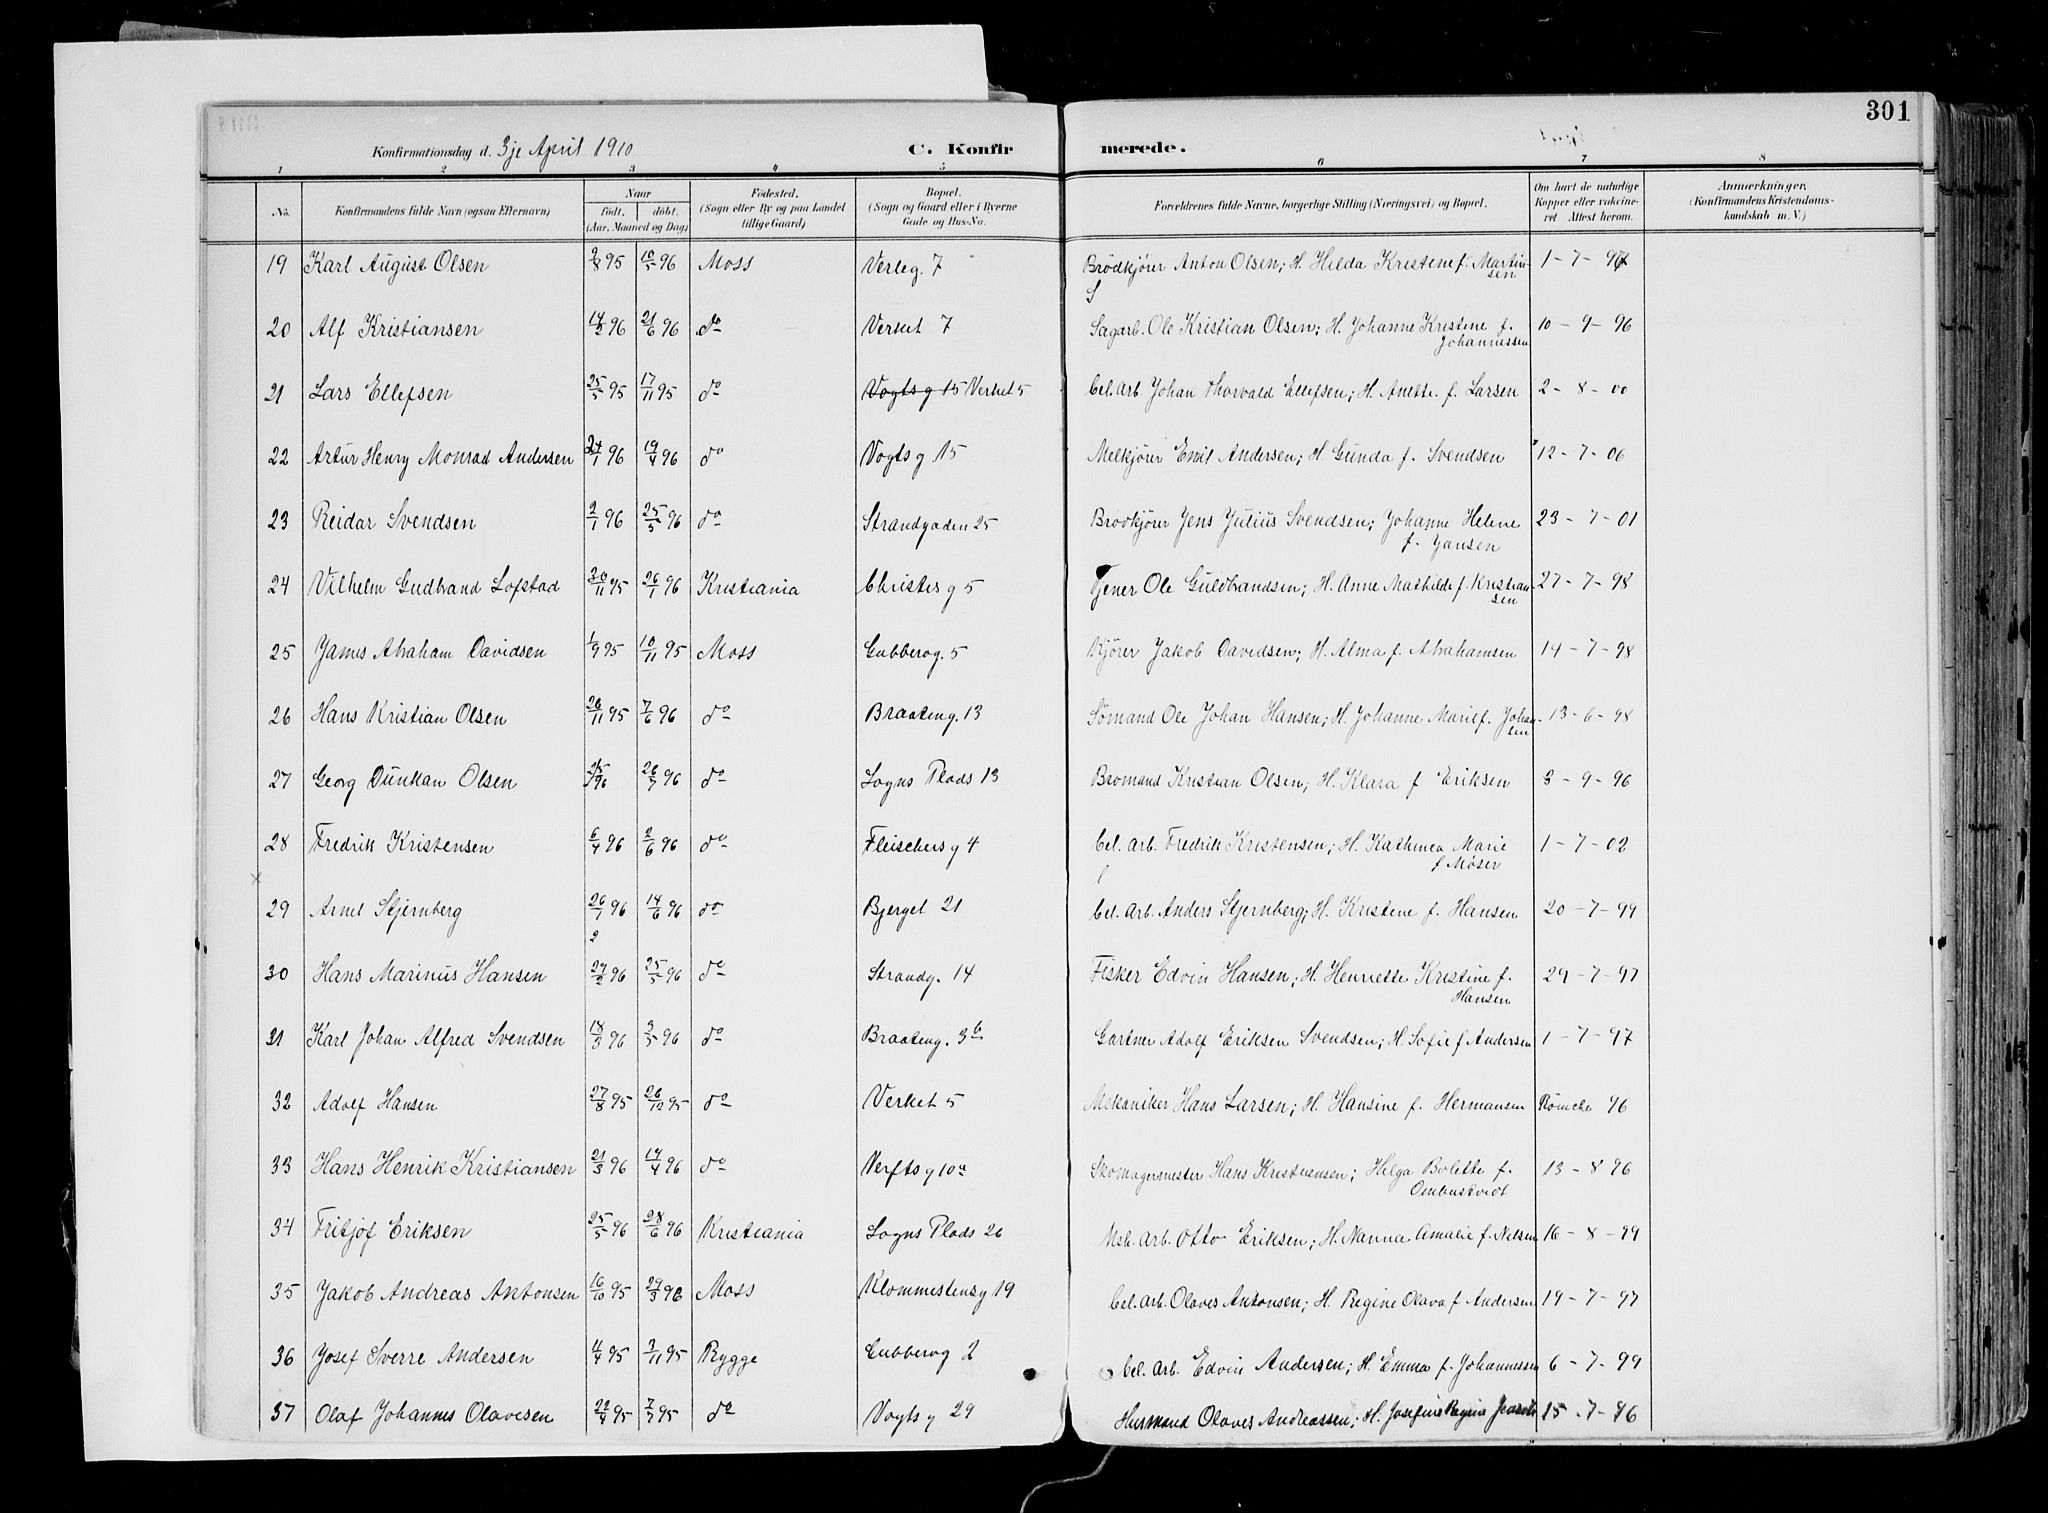 301
Konfirmationsdag d. 3je April 1910 C. Konfirmerede.
1 2 3 4 5 6 7 8
No. Konfirmandens fulde Navn (ogsaa Efternavn) Naar født. døbt. (Aar, Maaned og Dag) Fødested. (Sogn eller By og paa Landet tillige Gaard) Bopæl. (Sogn og Gaard eller i Byerne Gade og Hus-No. Forældrenes fulde Navne, borgerlige Stilling (Næringsvei) og Bopæl. Om havt de naturlige Kopper eller vakcineret Attest herom. Anmærkninger, (Konfirmandens Kristendomskundskab m. V.)
19 Karl August Olsen 2/8 95 10/5 96 Moss Verleg. 7 Brødkjører Anton Olsen; H. Hilda Kristene f. Martinsen 1-7-97
20 Alf Kristiansen 14/2 96 21/6 96 do Verket 7 Sagarb. Ole Kristian Olsen; H. Johanne Kristine f. Johannessen 10-9-96
21 Lars Ellefsen 25/5 95 17/11 95 do Vogts g 15 Verket 5 Cel. arb. Johan Thorvald Ellefsen; H. Anette f. Larsen 2-8-00
22 Artur Henry Monrad Andersen 24/1 96 19/4 96 do Vogts g. 15 Melkjører Emil Andersen; H. Gunda f. Svendsen 12-7-06
23 Reidar Svendsen 2/1 96 25/5 96 do Strandgaden 25 Brødkjører Jens Julius Svendsen; Johanne Helene f. Jansen 23-7-01
24 Vilhelm Gudbrand Lofstad 30/11 95 26/1 96 Kristiania Christies g 5 Tjener Ole Guldbrandsen; H. Anne Mathilde f. Kristiansen 27-7-98
25 James Abraham Davidsen 1/9 95 10/11 95 Moss Gubberog. 5 Kjører Jakob Davidsen; H. Alma f. Abrahamsen 14-7-98
26 Hans Kristian Olsen 26/11 95 7/6 96 do Braateng. 13 Sømand Ole Johan Hansen; H. Johanne Marie f. Johansen 13-6-98
27 Georg Dunkan Olsen 96 26/7 96 do Sogns Plads 13 Bromand Kristian Olsen; H. Klara f Eriksen 3-9-96
28 Fredrik Kristensen 6/4 96 2/6 96 do Fleischers g 4 Cel. arb. Fredrik Kristensen; H. Kathinca Marie f Møser 1-7-02
29 Arnt Stjernberg 26/1 96 14/6 96 do Bjerget 21 Cel. arb. Anders Stjernberg; H. Kristene f. Hansen 20-7-99
30 Hans Marinus Hansen 27/2 96 25/5 96 do Strandg. 14 Fisker Edvin Hansen; H. Henriette Kristine f. Hansen 29-7-97
31 Karl Johan Alfred Svendsen 18/3 96 3/5 96 do Braateng. 3b Gartner Adolf Eriksen Svendsen; H. Sofie f Andersen 1-7-97
32 Adolf Hansen 27/8 95 26/12 95 do Verket 5 Mekaniker Hans Larsen; H. Hansine f. Hermansen Römcke 96
33 Hans Henrik Kristiansen 21/3 96 19/4 96 do Verfts g 10a Skomagermester Hans Kristiansen; Helga Bolette f. Ombustvedt 13-8 96
34 Fritjof Eriksen 25/5 96 28/6 96 Kristiania Sogns Plads 26 Mek. arb. Otto Eriksen; H. Nanna Amalie f. Nelsen 16-8-99
35 Jakob Andreas Antonsen 16/10 95 29/3 96 Moss Klommestensg 19 Cel. arb. Olaves Antonsen; H. Regine Olava f Andersen 19-7-97
36 Josef Sverre Andersen 11/4 95 3/11 95 Rygge Gubberog 2 Cel. arb. Edvin Andersen; H. Emma f. Johannessen 6-7-99
37 Olaf Johannes Olavesen 22/4 95 7/7 95 do Vogts g 29 Husmand Olaves Andreassen; H. Josefine Regine 15-7-96